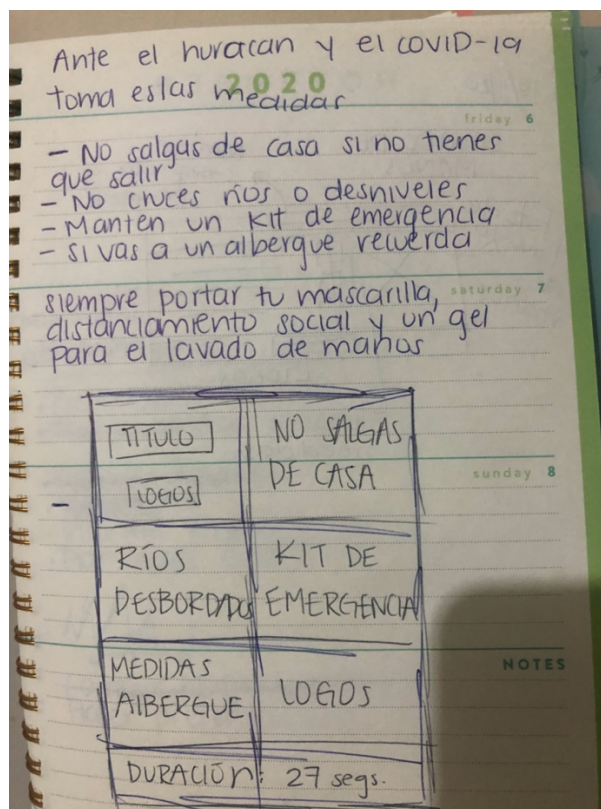 Ante el huracan y el COVID-19
2020
toma estas medidas
friday 6
- No salgas de casa si no tienes
que salir
- No cruces ríos o desniveles
- Manten un kit de emergencia
- si vas a un albergue recuerda
saturday 7
siempre portar tu mascarilla,
distanciamiento social y un gel
para el lavado de manos
TITULO
LOGOS
NO SALGAS
DE CASA
sunday 8
RÍOS
DESBORDADOS
KIT DE
EMERGENCIA
NOTES
MEDIDAS
ALBERGUE
LOGOS
DURACIÓN: 27 segs.